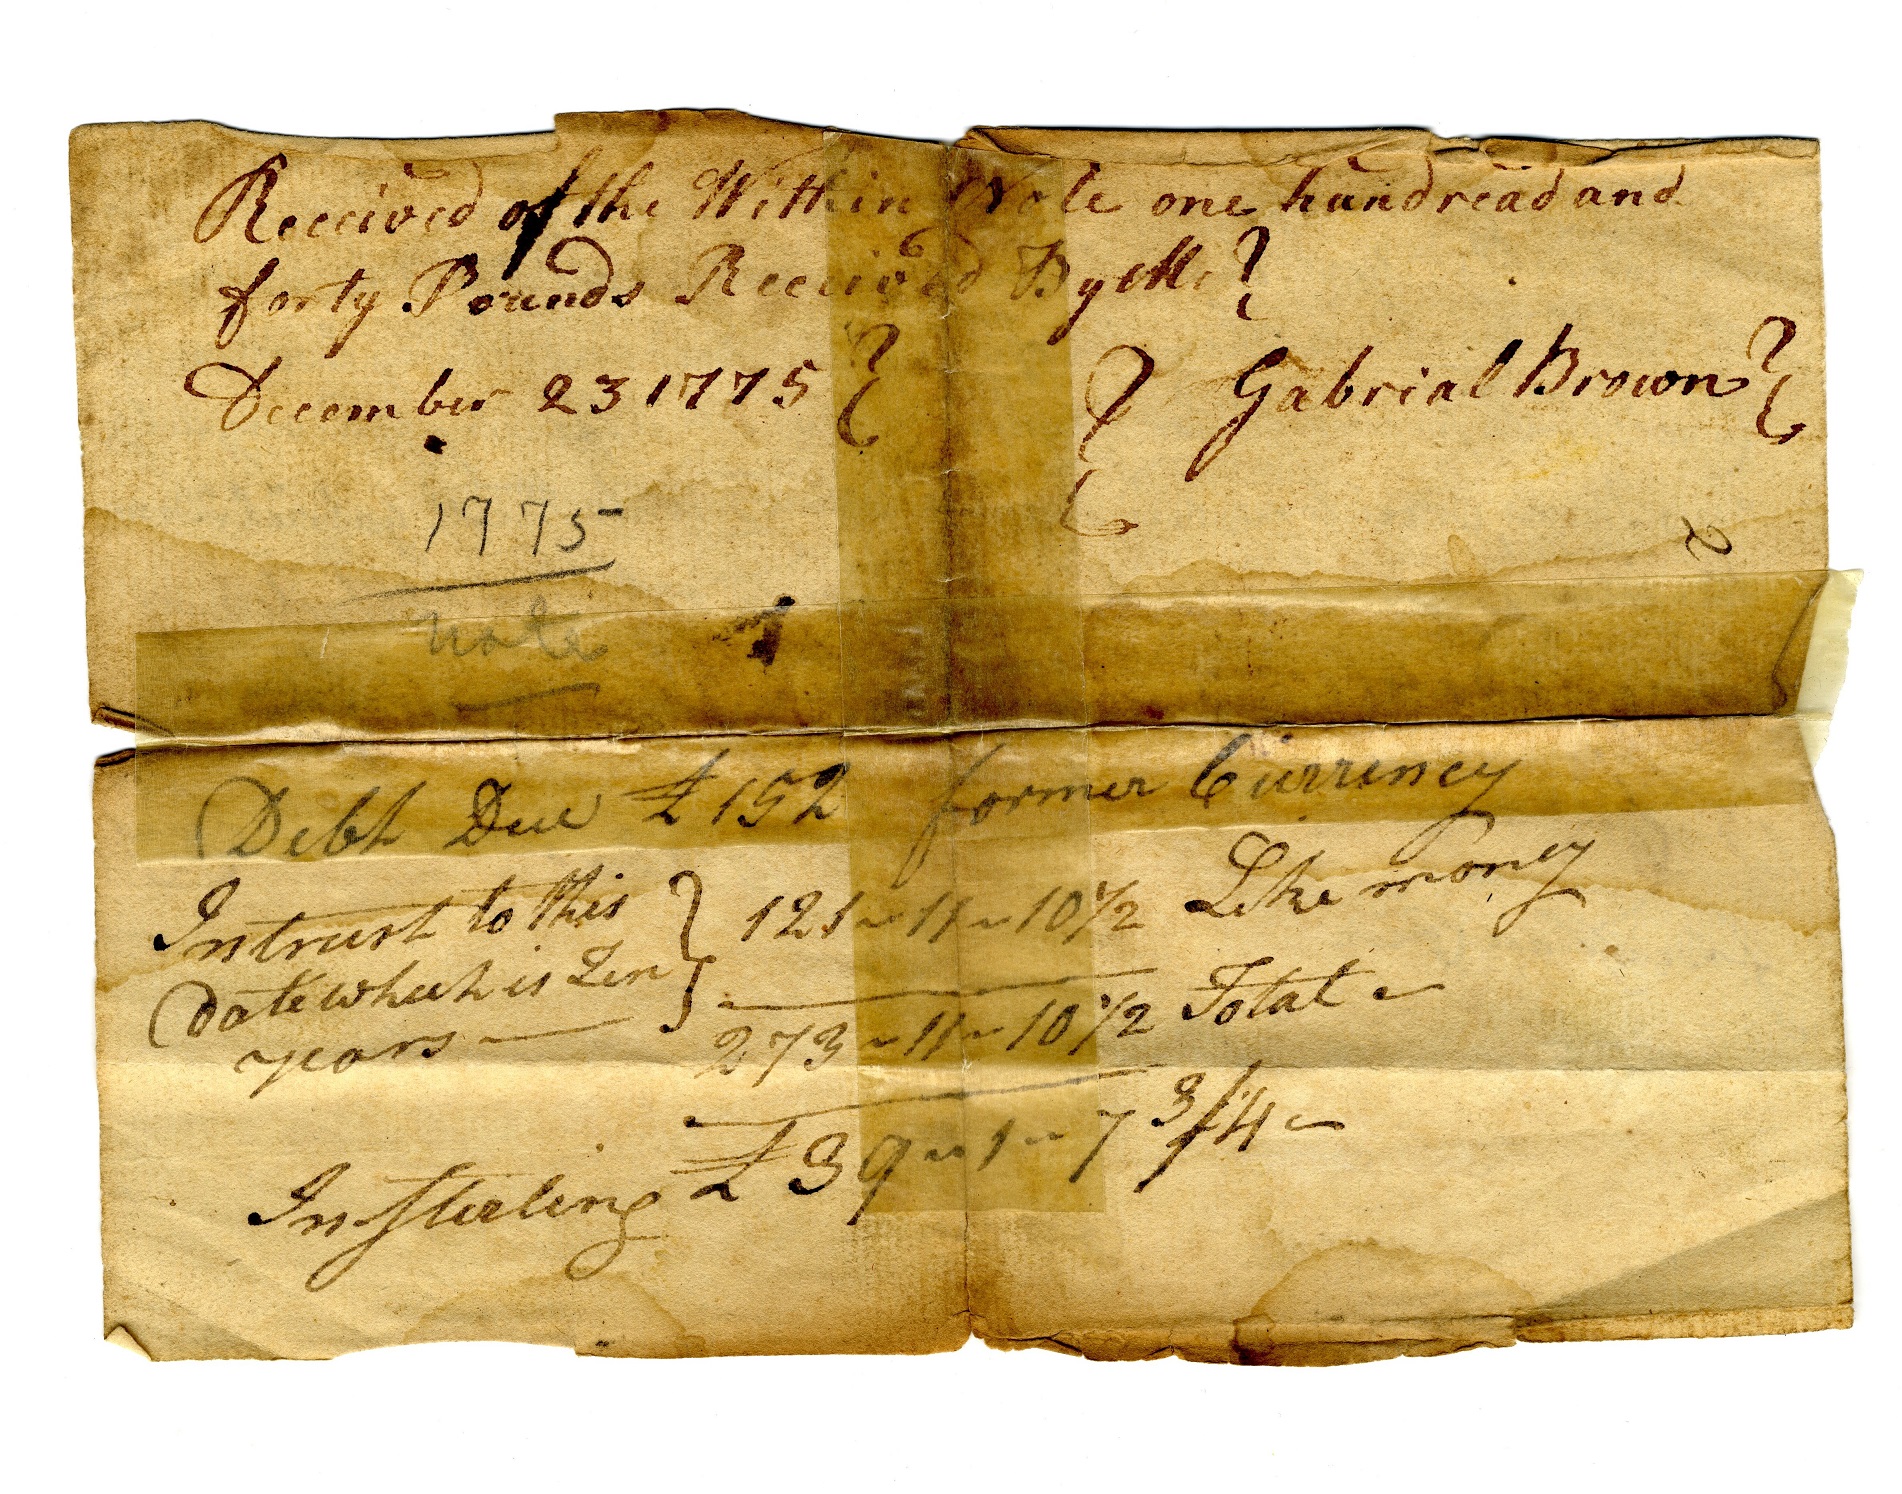 Received of the Within Note one hundread and
forty Pounds Received By Me
December 23 1775
Gabrial Brown
1775
note
Debt Due £152 former Currency
Intrust to this
date which is Ten
years
121 - 11 - 10 1/2 Like money
273 - 11 - 10 1/2 Total
In Sterling £39 - 1 - 7 3/4